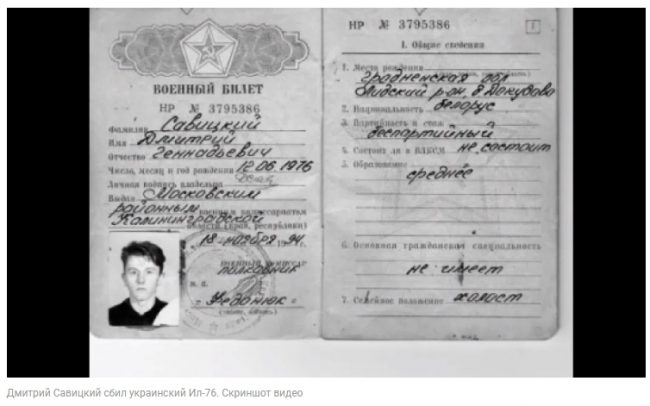 ВОЕННЫЙ БИЛЕТ
НР № 3795386
Фамилия Савицкий
Имя Дмитрий
Отчество Геннадьевич
Число, месяц и год рождения 12 06 1976
Личная подпись владельца
Выдан Московским
районным военным комиссариатом
Калининградской
области (края, республики)
18 ноября 1994 г.
полковник
м. п.
НР № 3795386
1
I. Общие сведения
1. Место рождения
Гродненская обл
Лидский р-он д Докудово
2. Национальность белорус
3. Партийность и стаж
беспартийный
4. Состоит ли в ВЛКСМ не состоит
5. Образование
среднее
6. Основная гражданская специальность
не имеет
7. Семейное положение холост
Дмитрий Савицкий сбил украинский Ил-76. Скриншот видео